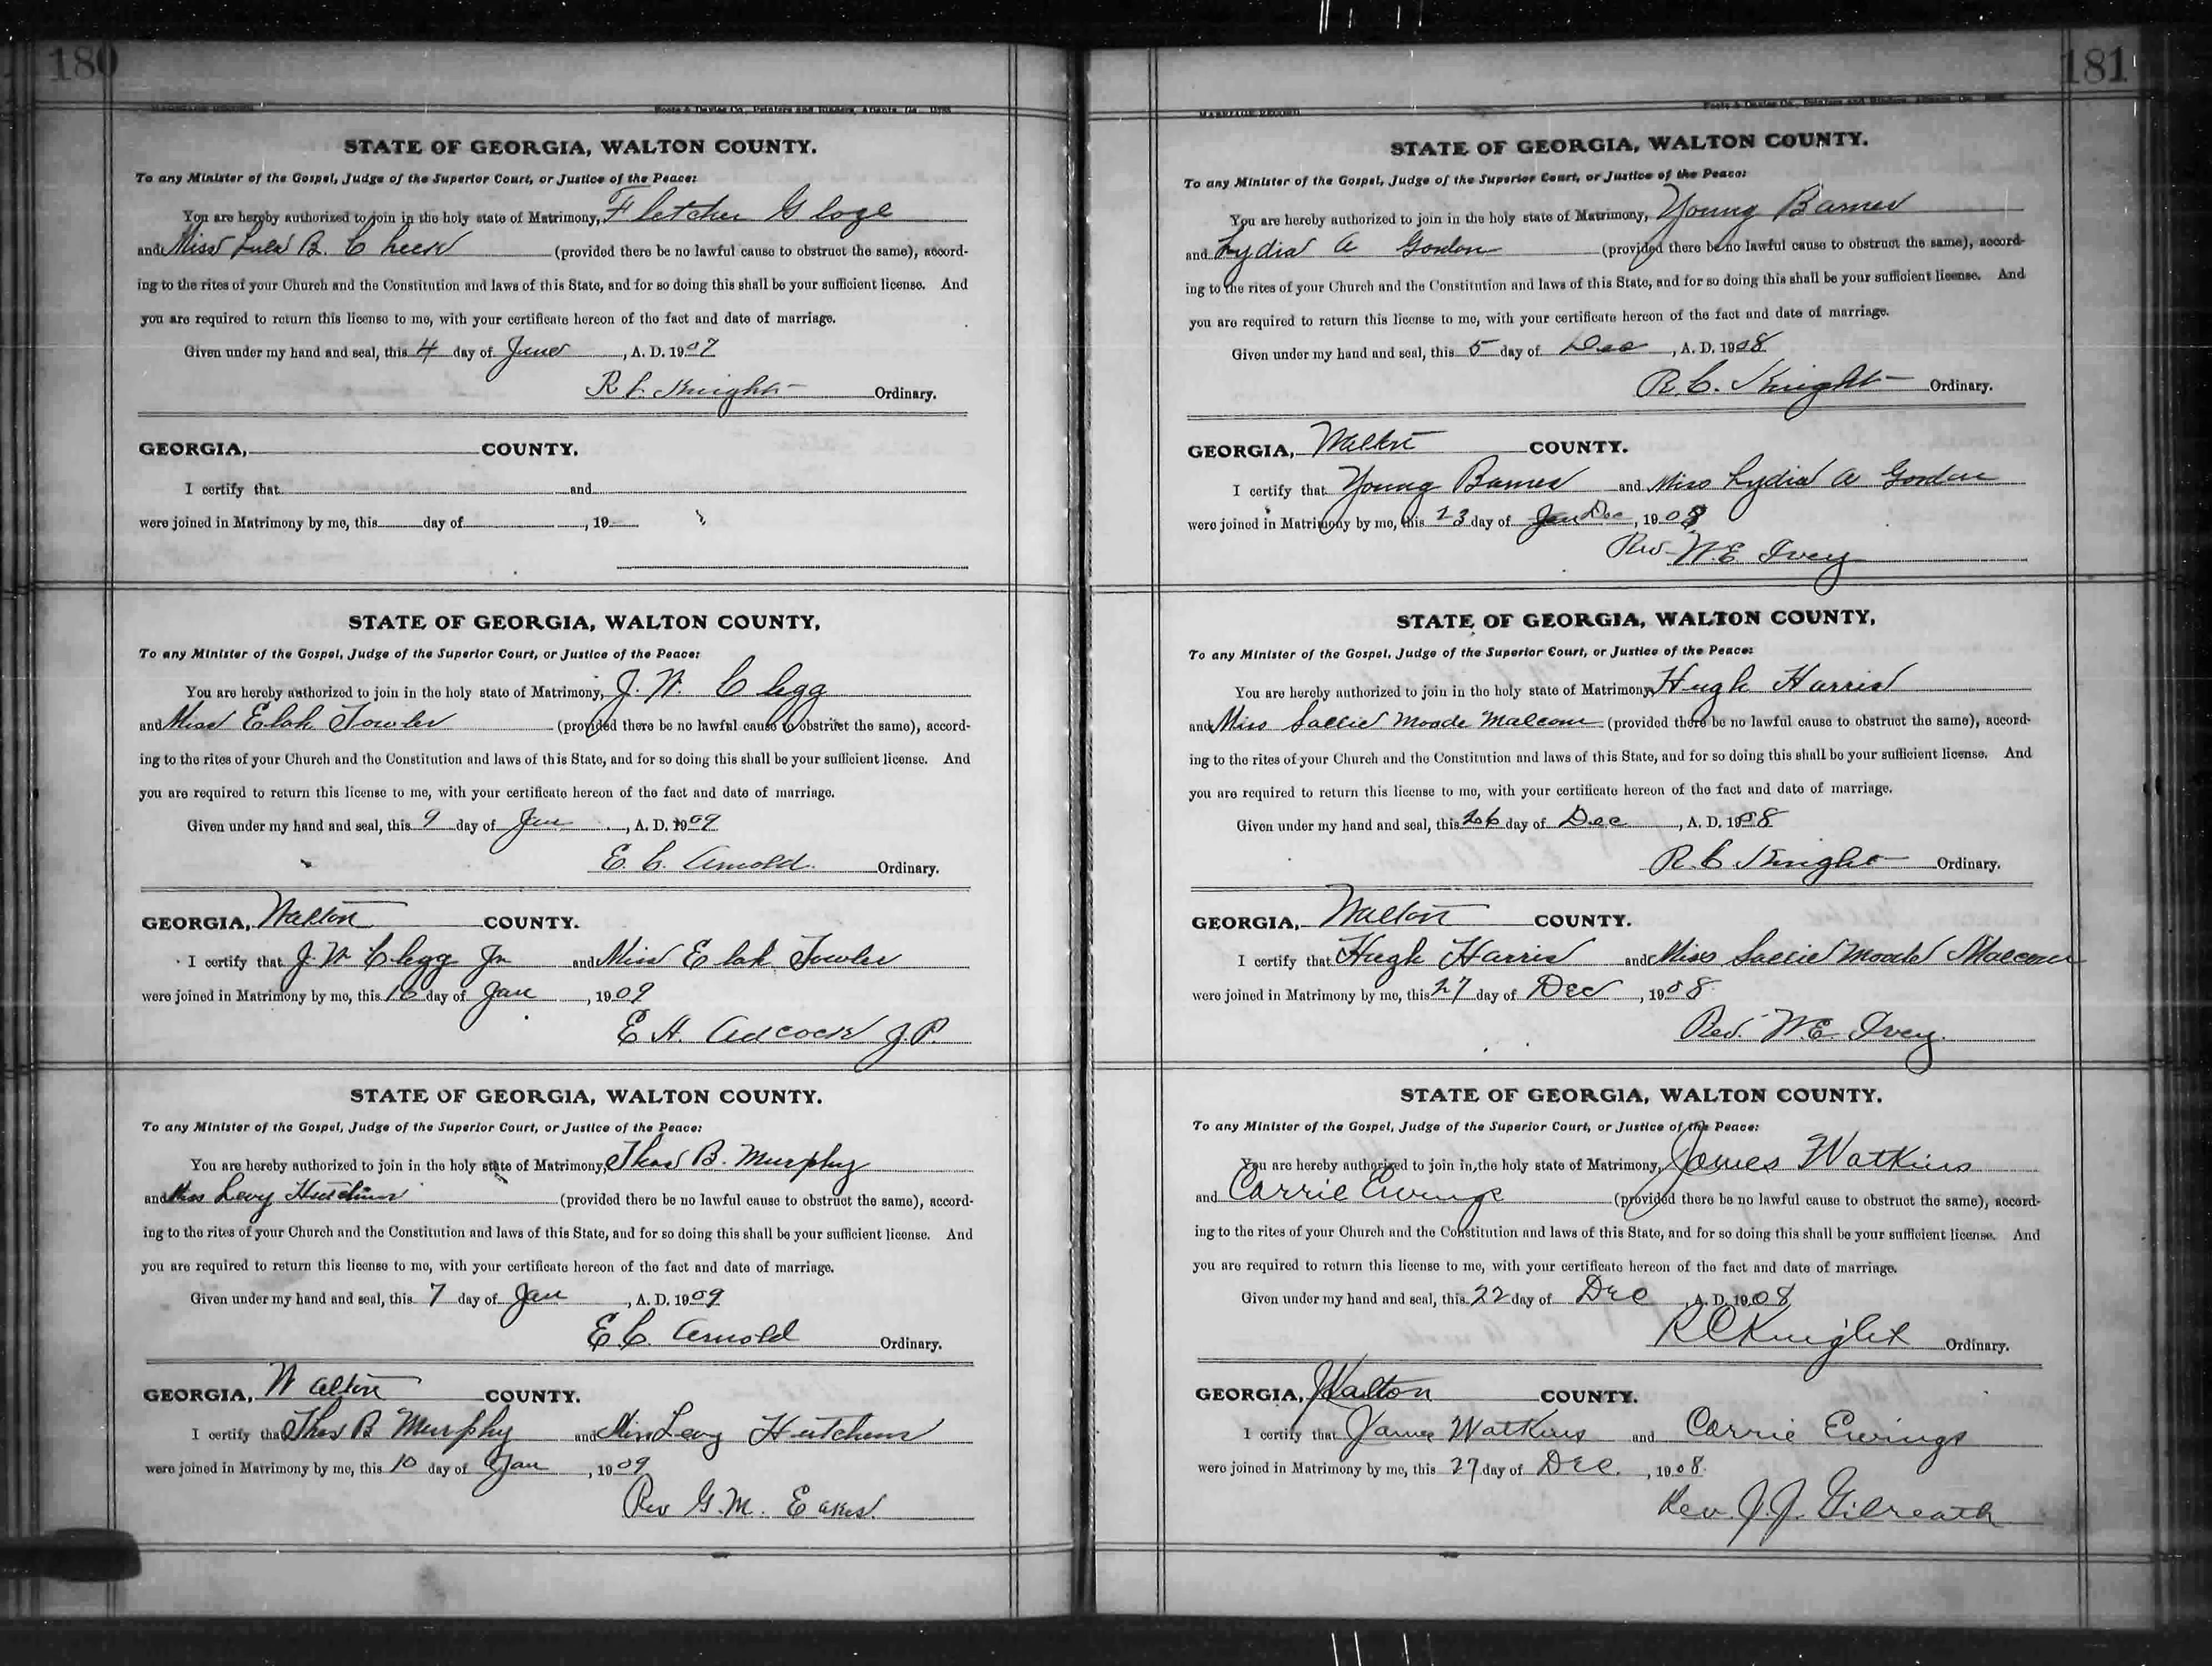 180
MARRIAGE RECORD Foote & Davies Co., Printers and Binders, Atlanta, Ga.
STATE OF GEORGIA, WALTON COUNTY.
To any Minister of the Gospel, Judge of the Superior Court, or Justice of the Peace:
You are hereby authorized to join in the holy state of Matrimony, Fletcher
and Miss Lula B. Cheek (provided there be no lawful cause to obstruct the same), accord-
ing to the rites of your Church and the Constitution and laws of this State, and for so doing this shall be your sufficient license. And
you are required to return this license to me, with your certificate hereon of the fact and date of marriage.
Given under my hand and seal, this 4 day of June, A. D. 1907
R C. Knight Ordinary.
GEORGIA, COUNTY.
I certify that and
were joined in Matrimony by me, this day of , 19
STATE OF GEORGIA, WALTON COUNTY,
To any Minister of the Gospel, Judge of the Superior Court, or Justice of the Peace:
You are hereby authorized to join in the holy state of Matrimony, J. W. Clegg
and Miss Elah Fowler (provided there be no lawful cause to obstruct the same), accord-
ing to the rites of your Church and the Constitution and laws of this State, and for so doing this shall be your sufficient license. And
you are required to return this license to me, with your certificate hereon of the fact and date of marriage.
Given under my hand and seal, this 9 day of Jan, A. D. 1909
E. C. Arnold Ordinary.
GEORGIA, Walton COUNTY.
I certify that J. W Clegg Jr and Miss Elah Fowler
were joined in Matrimony by me, this 10 day of Jan, 1909
E H. Adcock J.P.
STATE OF GEORGIA, WALTON COUNTY.
To any Minister of the Gospel, Judge of the Superior Court, or Justice of the Peace:
You are hereby authorized to join in the holy state of Matrimony, Thos B. Murphy
and Miss Levy Hutchins (provided there be no lawful cause to obstruct the same), accord-
ing to the rites of your Church and the Constitution and laws of this State, and for so doing this shall be your sufficient license. And
you are required to return this license to me, with your certificate hereon of the fact and date of marriage.
Given under my hand and seal, this 7 day of Jan, A. D. 1909
E C. Arnold Ordinary.
GEORGIA, Walton COUNTY.
I certify that Thos B Murphy and Miss Levy Hutchens
were joined in Matrimony by me, this 10 day of Jan, 1909
Rev G. M. Eakes.
181
MARRIAGE RECORD Foote & Davies Co., Printers and Binders, Atlanta, Ga.
STATE OF GEORGIA, WALTON COUNTY.
To any Minister of the Gospel, Judge of the Superior Court, or Justice of the Peace:
You are hereby authorized to join in the holy state of Matrimony, Young Barnes
and Lydia A Gordon (provided there be no lawful cause to obstruct the same), accord-
ing to the rites of your Church and the Constitution and laws of this State, and for so doing this shall be your sufficient license. And
you are required to return this license to me, with your certificate hereon of the fact and date of marriage.
Given under my hand and seal, this 5 day of Dec, A. D. 1908
R. C. Knight Ordinary.
GEORGIA, Walton COUNTY.
I certify that Young Barnes and Miss Lydia A Gordon
were joined in Matrimony by me, this 23 day of Jan Dec, 1908
Rev. W. E. Ivey
STATE OF GEORGIA, WALTON COUNTY,
To any Minister of the Gospel, Judge of the Superior Court, or Justice of the Peace:
You are hereby authorized to join in the holy state of Matrimony, Hugh Harris
and Miss Sallie Moode Malcom (provided there be no lawful cause to obstruct the same), accord-
ing to the rites of your Church and the Constitution and laws of this State, and for so doing this shall be your sufficient license. And
you are required to return this license to me, with your certificate hereon of the fact and date of marriage.
Given under my hand and seal, this 26 day of Dec, A. D. 1908
R. C Knight Ordinary.
GEORGIA, Walton COUNTY.
I certify that Hugh Harris and Miss Sallie Moode Malcom
were joined in Matrimony by me, this 27 day of Dec, 1908
Rev. W. E. Ivey.
STATE OF GEORGIA, WALTON COUNTY.
To any Minister of the Gospel, Judge of the Superior Court, or Justice of the Peace:
You are hereby authorized to join in the holy state of Matrimony, James Watkins
and Carrie Ewings (provided there be no lawful cause to obstruct the same), accord-
ing to the rites of your Church and the Constitution and laws of this State, and for so doing this shall be your sufficient license. And
you are required to return this license to me, with your certificate hereon of the fact and date of marriage.
Given under my hand and seal, this 22 day of Dec, A. D. 1908
R C Knight Ordinary.
GEORGIA, Walton COUNTY.
I certify that James Watkins and Carrie Ewings
were joined in Matrimony by me, this 27 day of Dec., 1908.
Rev. J. J. Gilreath